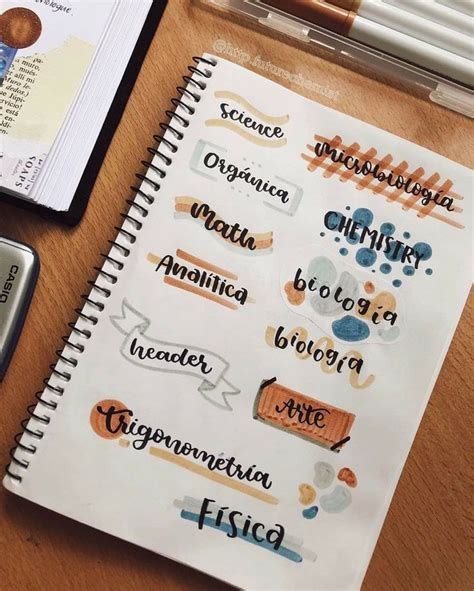 muro,
servicio!
SOAPS
CASIO
science
Orgánica
Math
Analítica
header
Trigonometría
Física
microbiología
CHEMISTRY
biología
biología
Arte